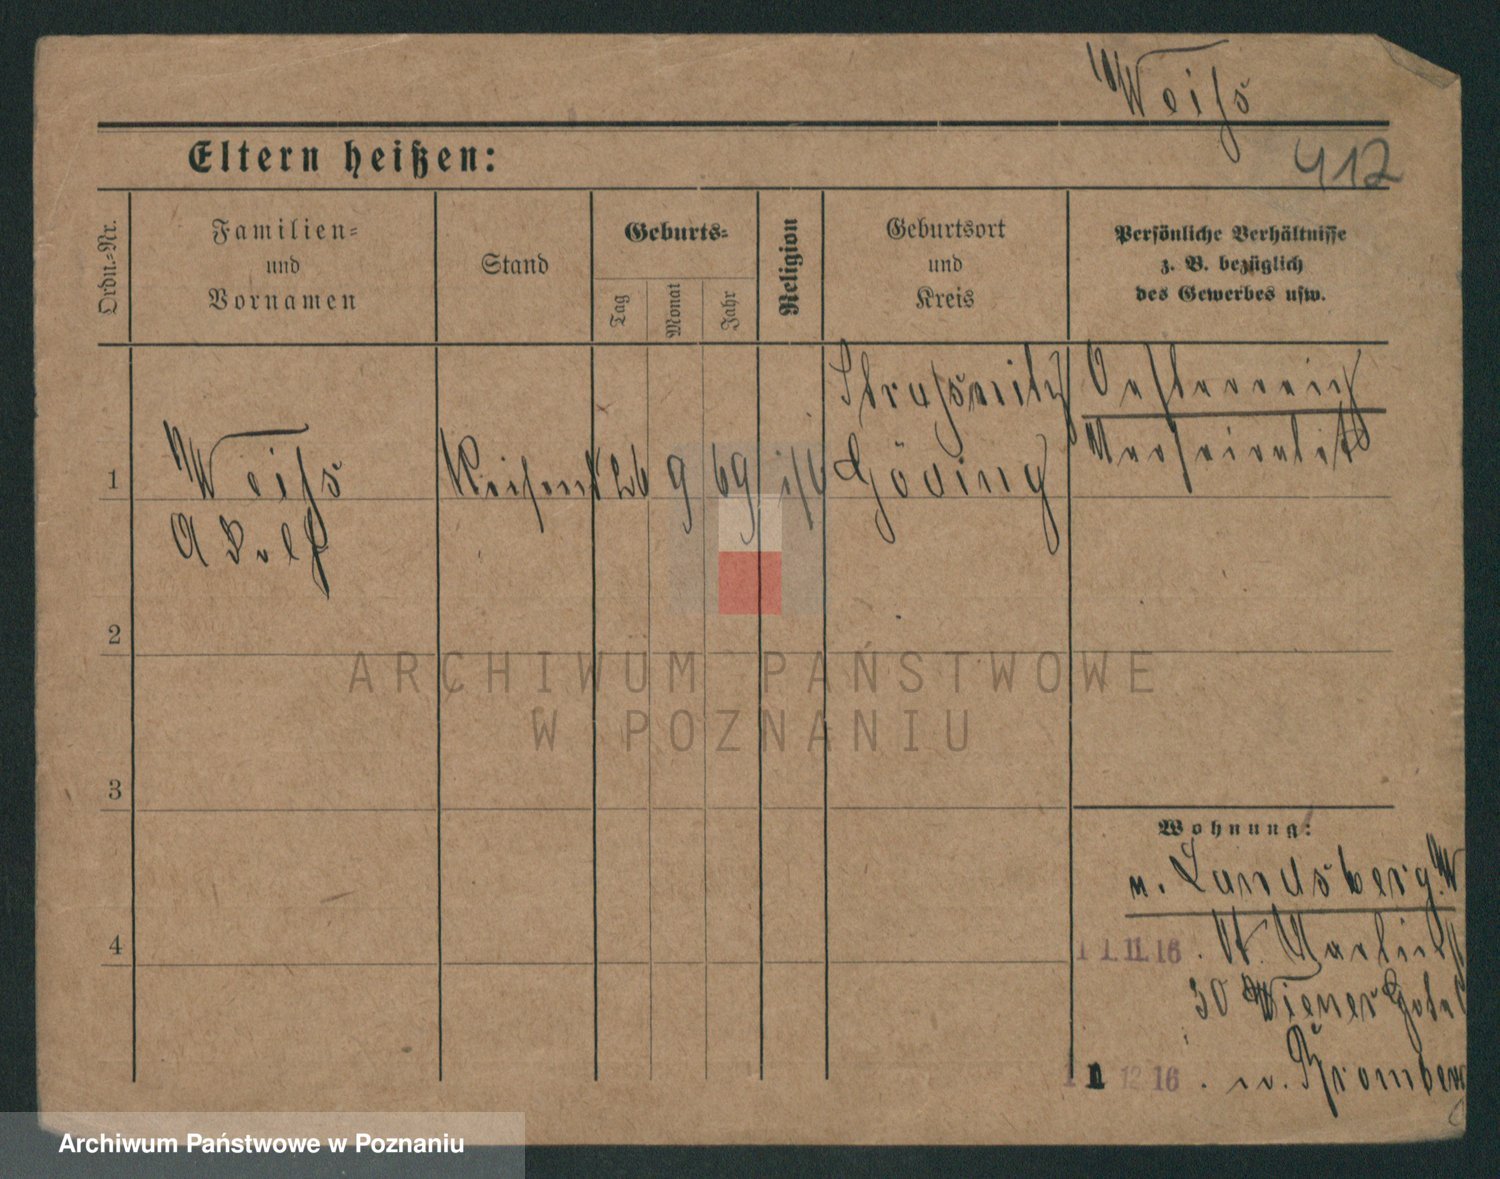 Weiß
412
Eltern heißen:
Ordn.-Nr.
Familien-
und
Vornamen
Stand
Geburts-
Tag
Monat
Jahr
Religion
Geburtsort
und
Kreis
Persönliche Verhältnisse
z. B. bezüglich
des Gewerbes usw.
1
Weiß
Adolf
Reisend
26
9
69
isr
Straßnitz
Göding
Oesterreich
2
3
4
Wohnung:
n. Landsberg W
11.11.16. St. Martin
30 Wiener Hof
12 16. n. Bromberg
ARCHIWUM PAŃSTWOWE
W POZNANIU
Archiwum Państwowe w Poznaniu